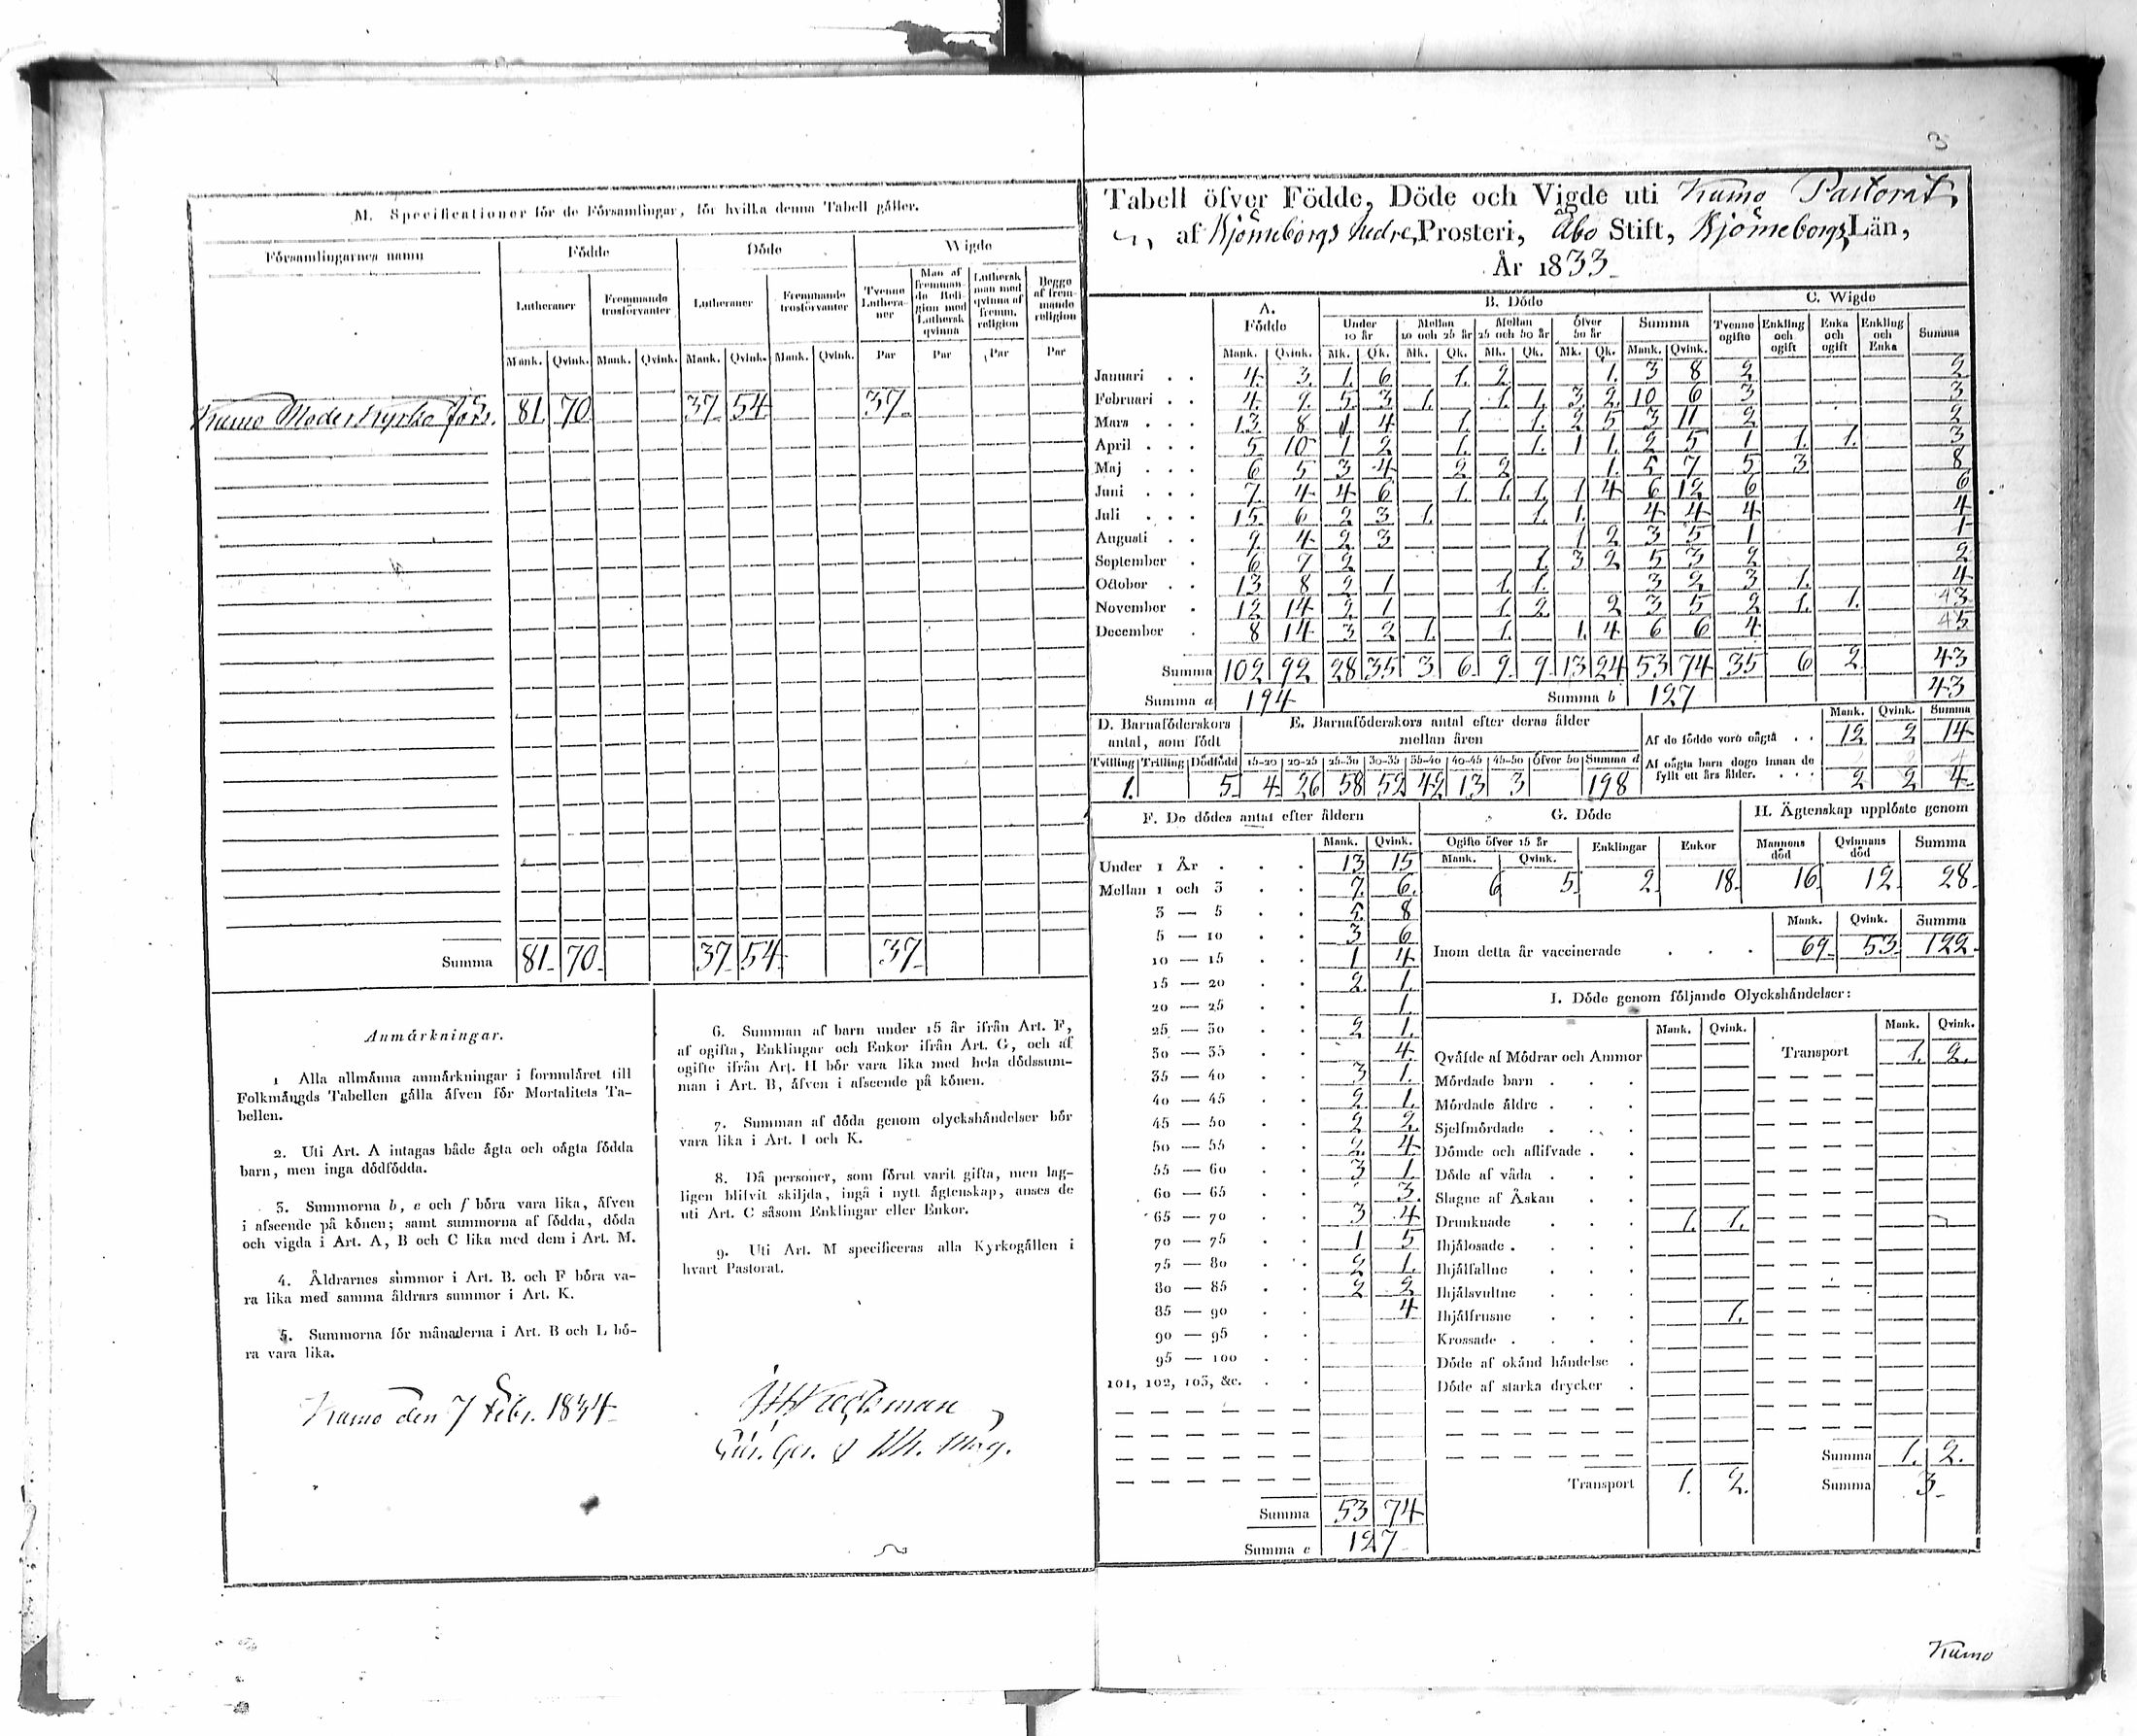 M. Specificationer för de Församlingar, för hvilka denna Tabell gäller.
Församlingarnes namn | Födde | Döde | Wigde
Lutheraner | Fremmande trosförvanter | Lutheraner | Fremmande trosförvanter | Tvenne Lutheraner | Man af fremmande Religion med Luthersk qvinna | Luthersk man med qvinna af fremm. religion | Begge af fremmande religion
Mank. | Qvink. | Mank. | Qvink. | Mank. | Qvink. | Mank. | Qvink. | Par | Par | Par | Par
Kumo Moderkyrko förs. | 81. | 70. | 37. | 54 | 37.
Summa | 81. | 70. | 37. | 54. | 37.
Anmärkningar.
1 Alla allmänna anmärkningar i formuläret till
Folkmängds Tabellen gälla äfven för Mortalitets Ta-
bellen.
2. Uti Art. A intagas både ägta och oägta födda
barn, men inga dödfödda.
3. Summorna b, e och f böra vara lika, äfven
i afseende på könen; samt summorna af födda, döda
och vigda i Art. A, B och C lika med dem i Art. M.
4. Åldrarnes summor i Art. B. och F böra va-
ra lika med samma åldrars summor i Art. K.
5. Summorna för månaderna i Art. B och L bö-
ra vara lika.
6. Summan af barn under 15 år ifrån Art. F,
af ogifta, Enklingar och Enkor ifrån Art. G, och af
ogifte ifrån Art. H bör vara lika med hela dödssum-
man i Art. B, äfven i afseende på könen.
7. Summan af döda genom olyckshändelser bör
vara lika i Art. I och K.
8. Då personer, som förut varit gifta, men lag-
ligen blifvit skiljda, ingå i nytt ägtenskap, anses de
uti Art. C såsom Enklingar eller Enkor.
9. Uti Art. M specificeras alla Kyrkogällen i
hvart Pastorat.
Kumo den 7 Febr. 1834
3
Tabell öfver Födde, Döde och Vigde uti Kumo Pastorat
af Björneborgs Nedre, Prosteri, Åbo Stift, Björneborgs Län,
År 1833
A. Födde | B. Döde | C. Wigde
Under 10 år | Mellan 10 och 25 år | Mellan 25 och 50 år | Öfver 50 år | Summa | Tvenne ogifte | Enkling och ogift | Enka och ogift | Enkling och Enka | Summa
Mank. | Qvink. | Mk. | Qk. | Mk. | Qk. | Mk. | Qk. | Mk. | Qk. | Mank. | Qvink.
Januari | 4. | 3. | 1. | 6 | 1. | 2 | 1. | 3 | 8 | 2 | 2
Februari | 4. | 9. | 5. | 3 | 1. | 1. | 1. | 3 | 2. | 10 | 6 | 3 | 3
Mars | 13. | 8 | 1 | 4 | 1. | 1. | 2 | 5 | 3 | 11 | 2 | 2
April | 5 | 10 | 1 | 2 | 1. | 1. | 1 | 1. | 2 | 5 | 1 | 1. | 1. | 3
Maj | 6 | 5 | 3 | 4 | 2 | 2 | 1. | 5 | 7 | 5 | 3 | 8
Juni | 7. | 4 | 4 | 6 | 1. | 1. | 1. | 1 | 4 | 6 | 12 | 6 | 6
Juli | 15 | 6 | 2 | 3 | 1. | 1. | 1. | 4 | 4 | 4 | 4
Augusti | 9. | 4 | 2 | 3 | 1 | 2 | 3 | 5 | 1 | 1
September | 6 | 7 | 2 | 1. | 3 | 2 | 5 | 3 | 2 | 2
October | 13 | 8 | 2 | 1 | 1. | 1. | 3 | 2 | 3 | 1. | 4
November | 12 | 14 | 2 | 1 | 1 | 2 | 2 | 3 | 5 | 2 | 1. | 1.
December | 8 | 14 | 3 | 2 | 1. | 1. | 1. | 4 | 6 | 6 | 4
Summa | 102 | 92 | 28 | 35 | 3 | 6. | 9. | 9. | 13 | 24 | 53 | 74 | 35 | 6 | 2 | 43
Summa a | 194 | Summa b | 127 | 43
D. Barnaföderskors antal, som födt | E. Barnaföderskors antal efter deras ålder mellan åren | Mank. | Qvink. | Summa
Tvilling | Trilling | Dödfödd | 15-20 | 20-25 | 25-30 | 30-35 | 35-40 | 40-45 | 45-50 | Öfver 50 | Summa d
1. | 5. | 4. | 26 | 58 | 52 | 42 | 13 | 3 | 198
Af de födde voro oägta | 12 | 2 | 14
Af oägta barn dogo innan de fyllt ett års ålder. | 2 | 2 | 4
F. De dödes antal efter åldern
Mank. | Qvink.
Under 1 År | 13 | 15
Mellan 1 och 3 | 7. | 6.
3 — 5 | 5. | 8
5 — 10 | 3 | 6
10 — 15 | 1 | 4
15 — 20 | 2. | 1.
20 — 25 | 1.
25 — 30 | 2 | 1.
30 — 35 | 4
35 — 40 | 3 | 1.
40 — 45 | 2 | 1.
45 — 50 | 2 | 2.
50 — 55 | 2. | 4
55 — 60 | 3 | 1.
60 — 65 | 3.
65 — 70 | 3 | 4
70 — 75 | 1 | 5
75 — 80 | 2 | 1.
80 — 85 | 2 | 2
85 — 90 | 4
90 — 95
95 — 100
101, 102, 103, &c.
Summa | 53 | 74
Summa c | 127
G. Döde
Ogifte öfver 15 år | Enklingar | Enkor
Mank. | Qvink.
6 | 5. | 2. | 18.
H. Ägtenskap upplöste genom
Mannens död | Qvinnans död | Summa
16 | 12. | 28.
Mank. | Qvink. | Summa
Inom detta år vaccinerade | 69. | 53. | 122.
I. Döde genom följande Olyckshändelser:
Mank. | Qvink. | Mank. | Qvink.
Qväfde af Mödrar och Ammor | Transport | 1. | 2.
Mördade barn
Mördade äldre
Sjelfmördade
Dömde och aflifvade
Döde af våda
Slagne af Åskan
Drunknade | 1. | 1.
Ihjälosade
Ihjälfallne
Ihjälsvultne
Ihjälfrusne | 1.
Krossade
Döde af okänd händelse
Döde af starka drycker
Summa | 1. | 2.
Transport | 1. | 2. | Summa | 3
Kumo